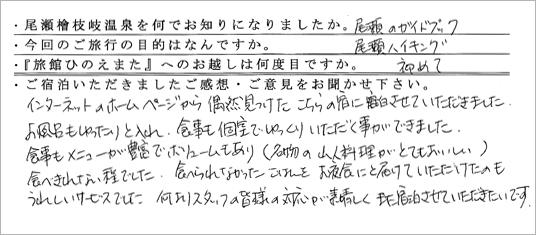 ・尾瀬檜枝岐温泉を何でお知りになりましたか。尾瀬のガイドブック
・今回のご旅行の目的はなんですか。尾瀬ハイキング
・『旅館ひのえまた』へのお越しは何度目ですか。初めて
・ご宿泊いただきましたご感想・ご意見をお聞かせ下さい。
インターネットのホームページから偶然見つけたこちらの宿に宿泊させていただきました.
お風呂もゆったりと入れ、食事も個室でゆっくりいただく事ができました.
食事もメニューが豊富でボリュームもあり(名物の山人料理がとてもおいしい)
食べきれない程でした. 食べられなかった お夜食にと届けていただけたのも
うれしいサービスでした 何よりスタッフの皆様の対応が素晴しく また宿泊させていただきたいです.